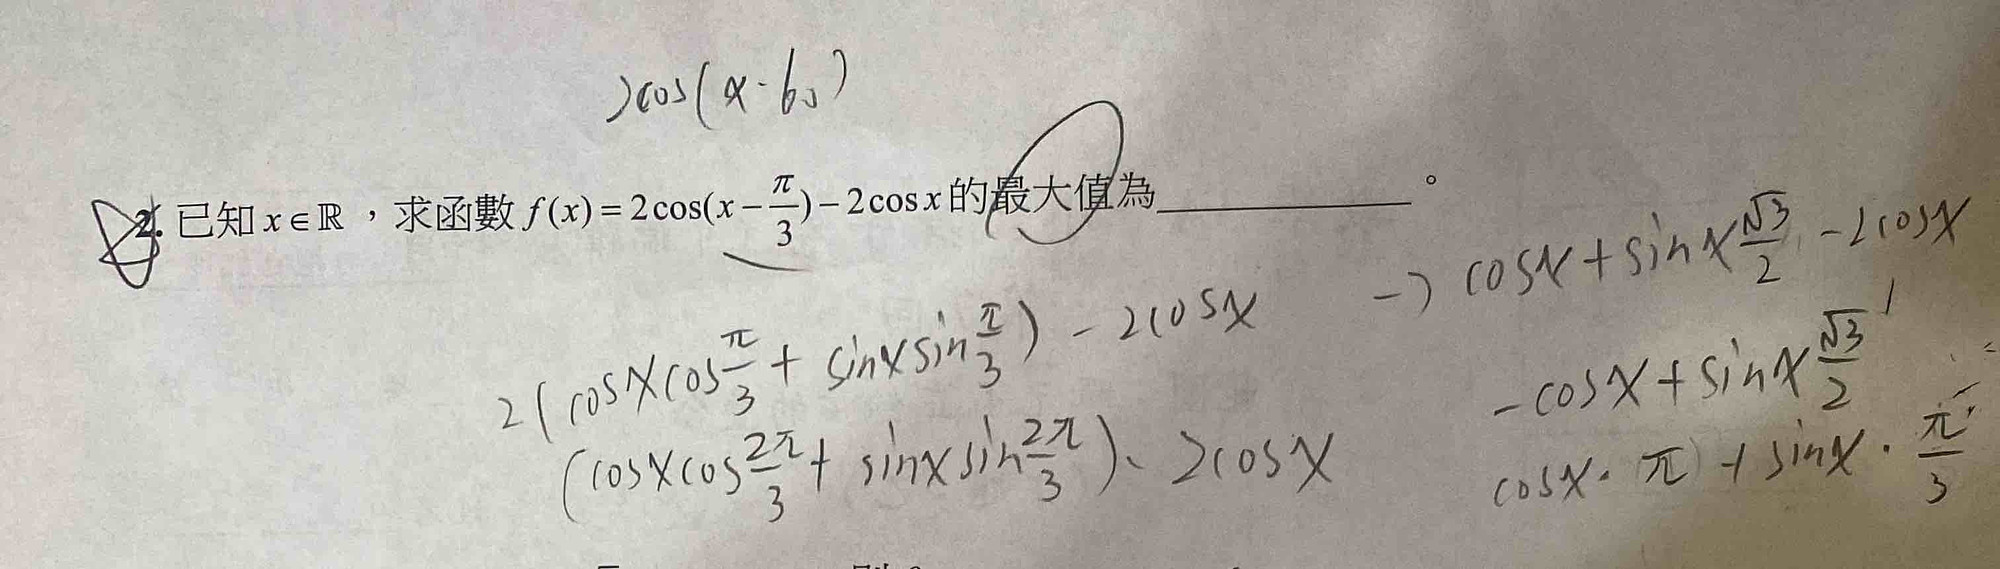 2cos(x-60)
2. 已知 x∈ℝ ，求函數 f(x)=2cos(x-π/3)-2cosx 的最大值為____________。
2(cosxcosπ/3+sinxsinπ/3)-2cosx
(cosxcos2π/3+sinxsin2π/3)-2cosx
→ cosx+sinx√3/2-2cosx
-cosx+sinx√3/2
cosx·π+sinx·π/3